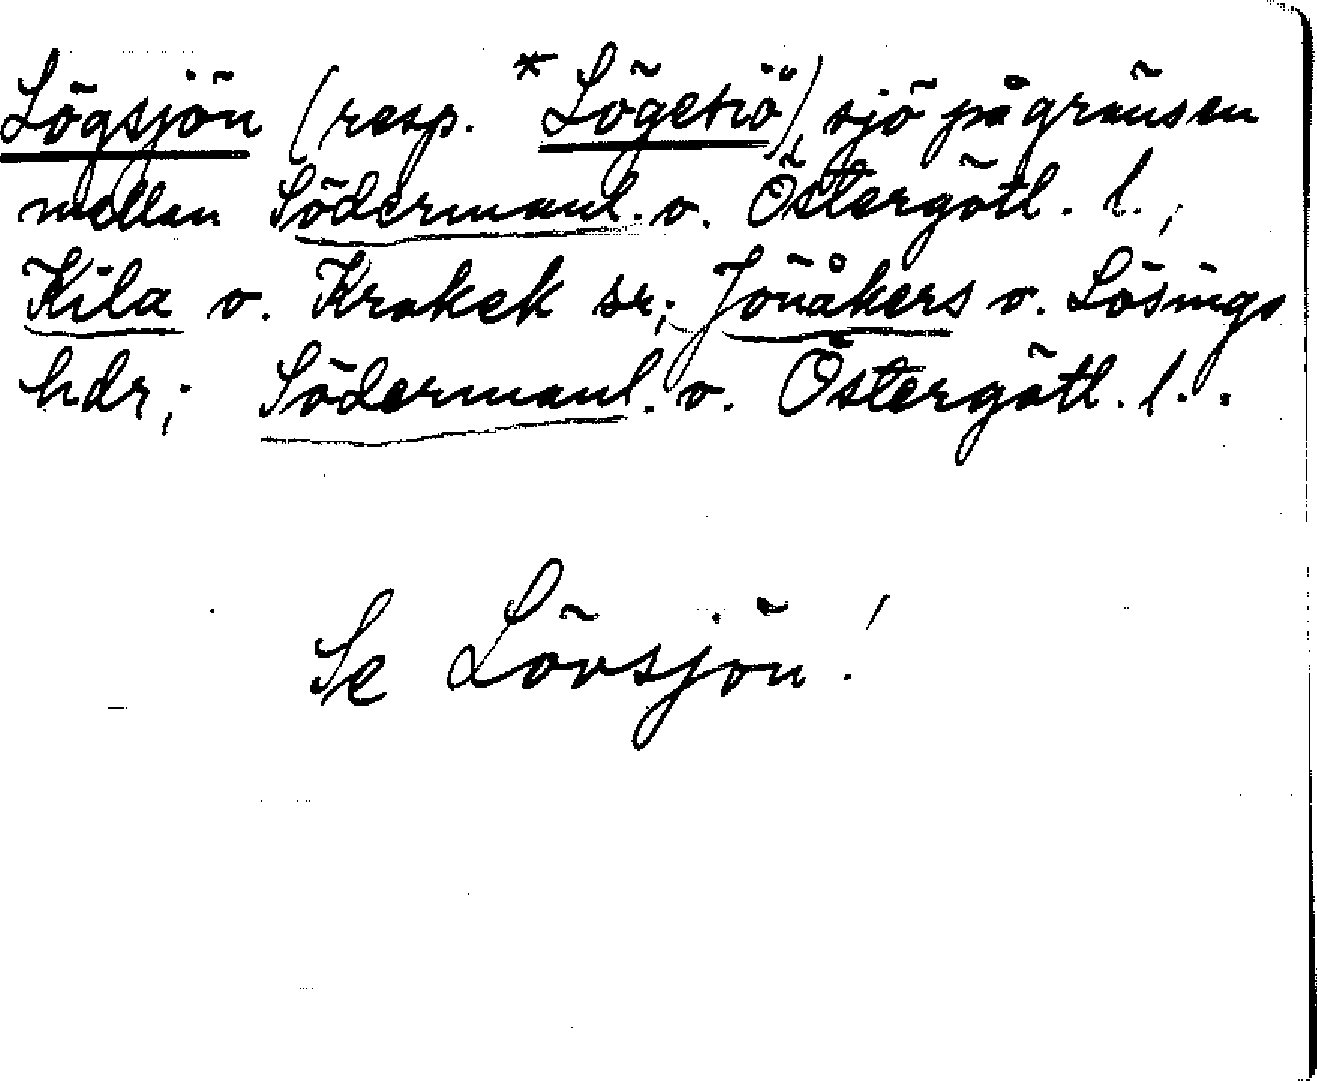 Lögsjön (resp. *Lögetiö), sjö på gränsen
mellan Södermanl. o. Östergötl. l.,
Kila o. Krokek sr; Jönåkers o. Lösings
hdr; Södermanl. o. Östergötl. l..
Se Lövsjön!